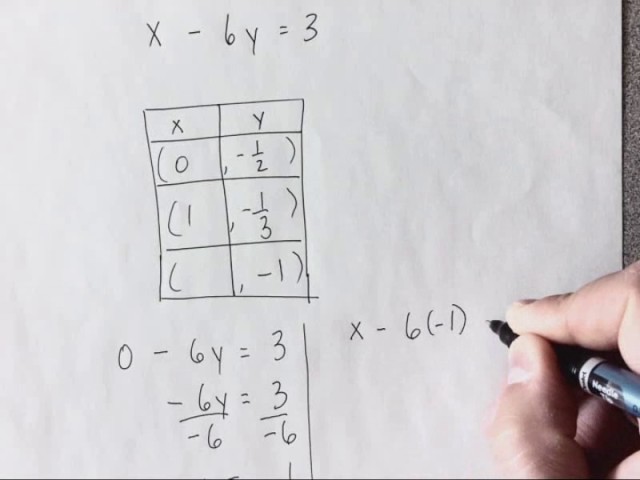 x - 6y = 3
x y
(0, -1/2)
(1, -1/3)
( , -1)
0 - 6y = 3
x - 6(-1)
-6y/-6 = 3/-6